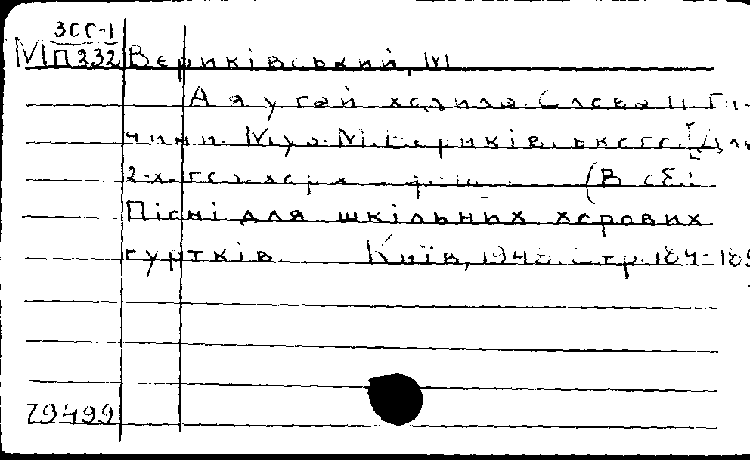 3СС-1
МП332 Вериківський, М
А я у гай ходила. Слова П. Ти-
чини. Муз. М. Вериківського. [Для
2-х гол. хору (В сб.:
Пісні для шкільних хорових
гуртків Київ, 1948. Стр. 184-185
79499